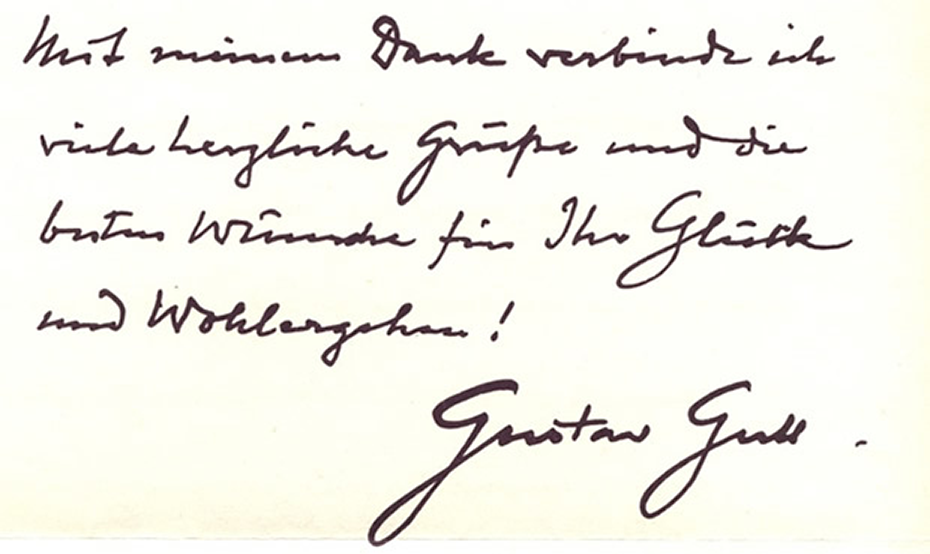 Mit meinem Dank verbinde ich
viele herzliche Grüße und die
besten Wünsche für Ihr Glück
und Wohlergehen!
Gustav Gull.